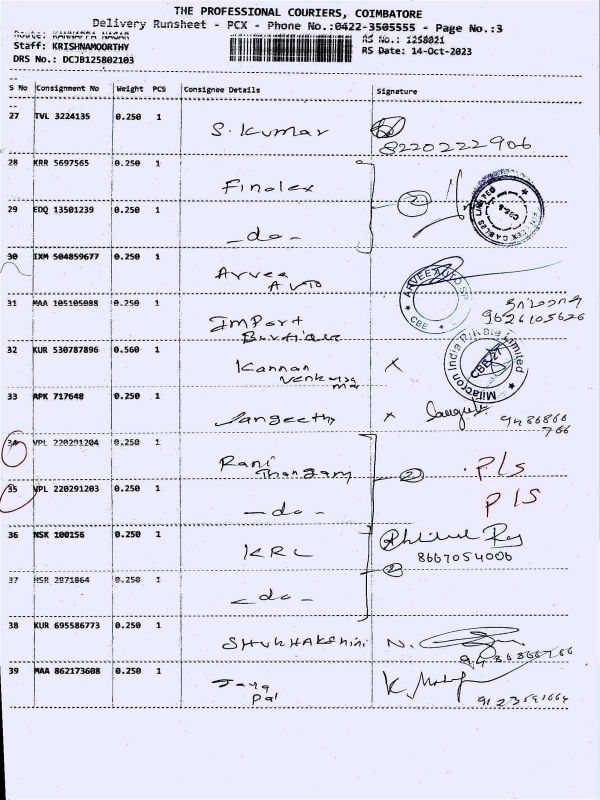 THE PROFESSIONAL COURIERS, COIMBATORE
Delivery Runsheet - PCX - Phone No.:0422-3505555 - Page No.:3
Route: KANNAPPA NAGAR
RS No.: 1258021
Staff: KRISHNAMOORTHY
RS Date: 14-Oct-2023
DRS No.: DCJB125802103
S No Consignment No Weight PCS Consignee Details Signature
27 TVL 3224135 0.250 1 S. Kumar
8220222906
28 KRR 5697565 0.250 1 Finolex 2
29 EDQ 13501239 0.250 1 - do -
30 IXM 504859677 0.250 1 Arvee
Auto
ARVEE AUTO
CBE
31 MAA 105105088 0.250 1 Import
9626105626
32 KUR 530787896 0.560 1 Kannan x
Milacron India Private Limited
33 APK 717648 0.250 1 Sangeetha x
9486866
766
34 VPL 220291204 0.250 1 Rani
Thangam
2 P/s
35 VPL 220291203 0.250 1 - do - P/S
36 NSK 100156 0.250 1 KRL
8667054006
37 HSR 2871864 0.250 1 - do - 2
38 KUR 695586773 0.250 1 N.
39 MAA 862173608 0.250 1 Jaya
pal
K.